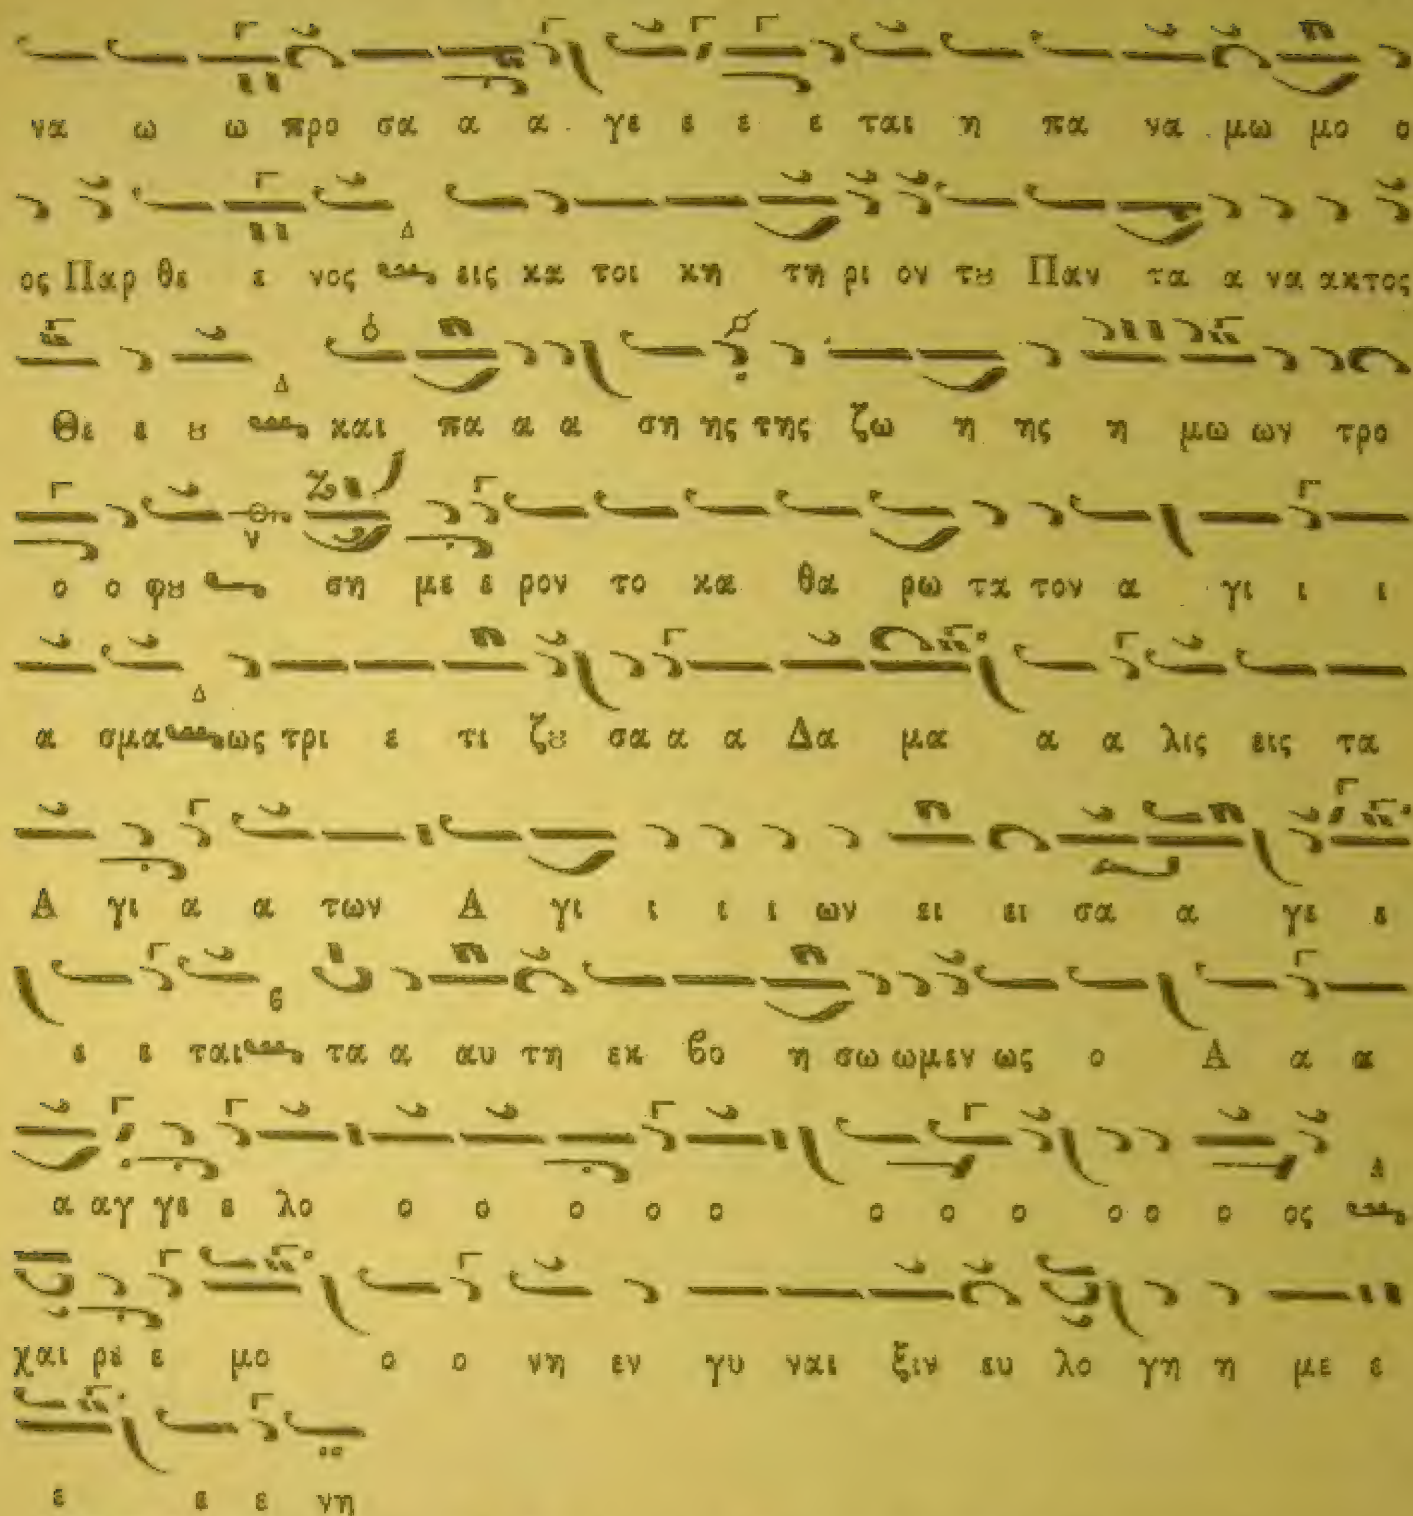 να ω ω προ σα α α γε ε ε ε ται η πα να μω μο ο
ος Παρ θε ε νος εις κα τοι κη τη ρι ον τȣ Παν τα α να ακτος
Θε ε ȣ και πα α α ση ης της ζω η ης η μω ων τρο
ο ο φȣ ση με ε ρον το κα θα ρω τα τον α γι ι ι
α σμα ως τρι ε τι ζȣ σα α α Δα μα α α λις εις τα
Α γι α α των Α γι ι ι ι ων ει ει σα α γε ε
ε ε ται τα α αυ τη εκ βο η σω ωμεν ως ο Α α α
α αγ γε ε λο ο ο ο ο ο ο ο ο ο ο ο ος
χαι ρε ε μο ο ο νη εν γυ ναι ξιν ευ λο γη η με ε
ε ε ε νη